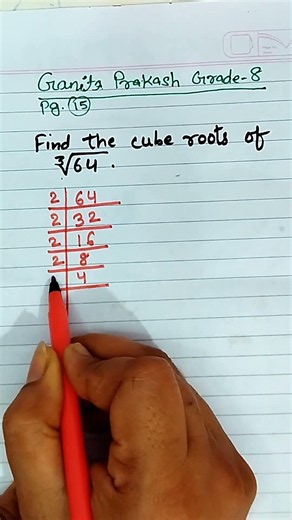 Ganita Prakash Grade-8
Pg. 15
Find the cube roots of
∛64.
2 | 64
2 | 32
2 | 16
2 | 8
4